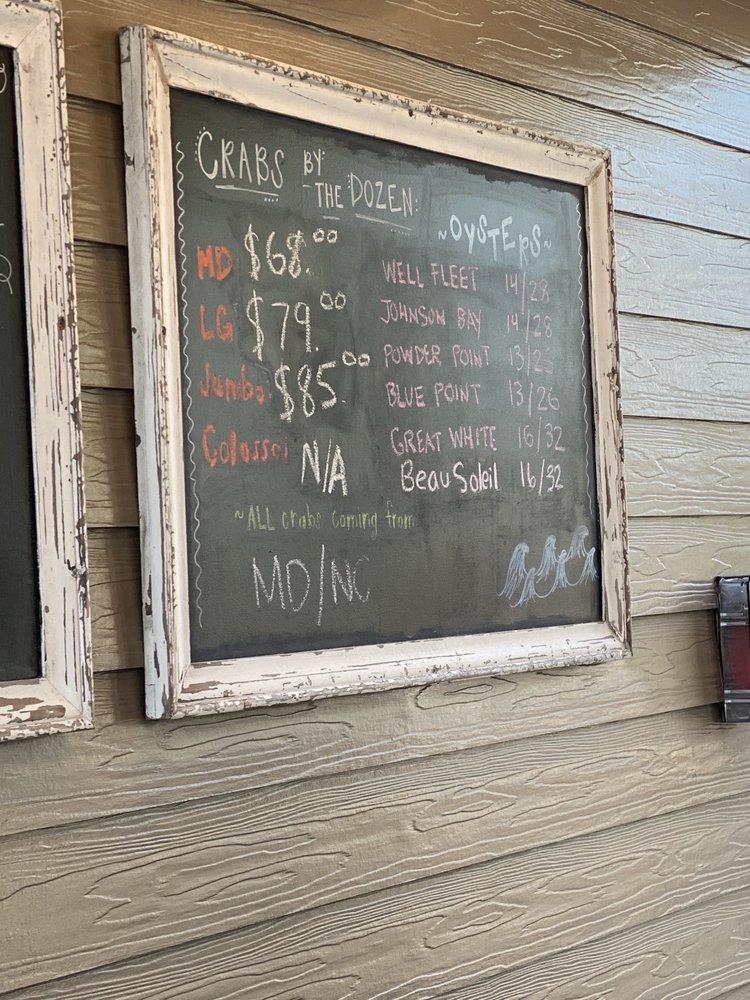 CRABS BY
THE DOZEN:
MD $68.00
LG $79.00
Jumbo $85.00
Colossal N/A
~ALL crabs coming from
MD/NC
~OYSTERS~
WELL FLEET 14/28
JOHNSON BAY 14/28
POWDER POINT 13/26
BLUE POINT 13/26
GREAT WHITE 16/32
Beau Soleil 16/32